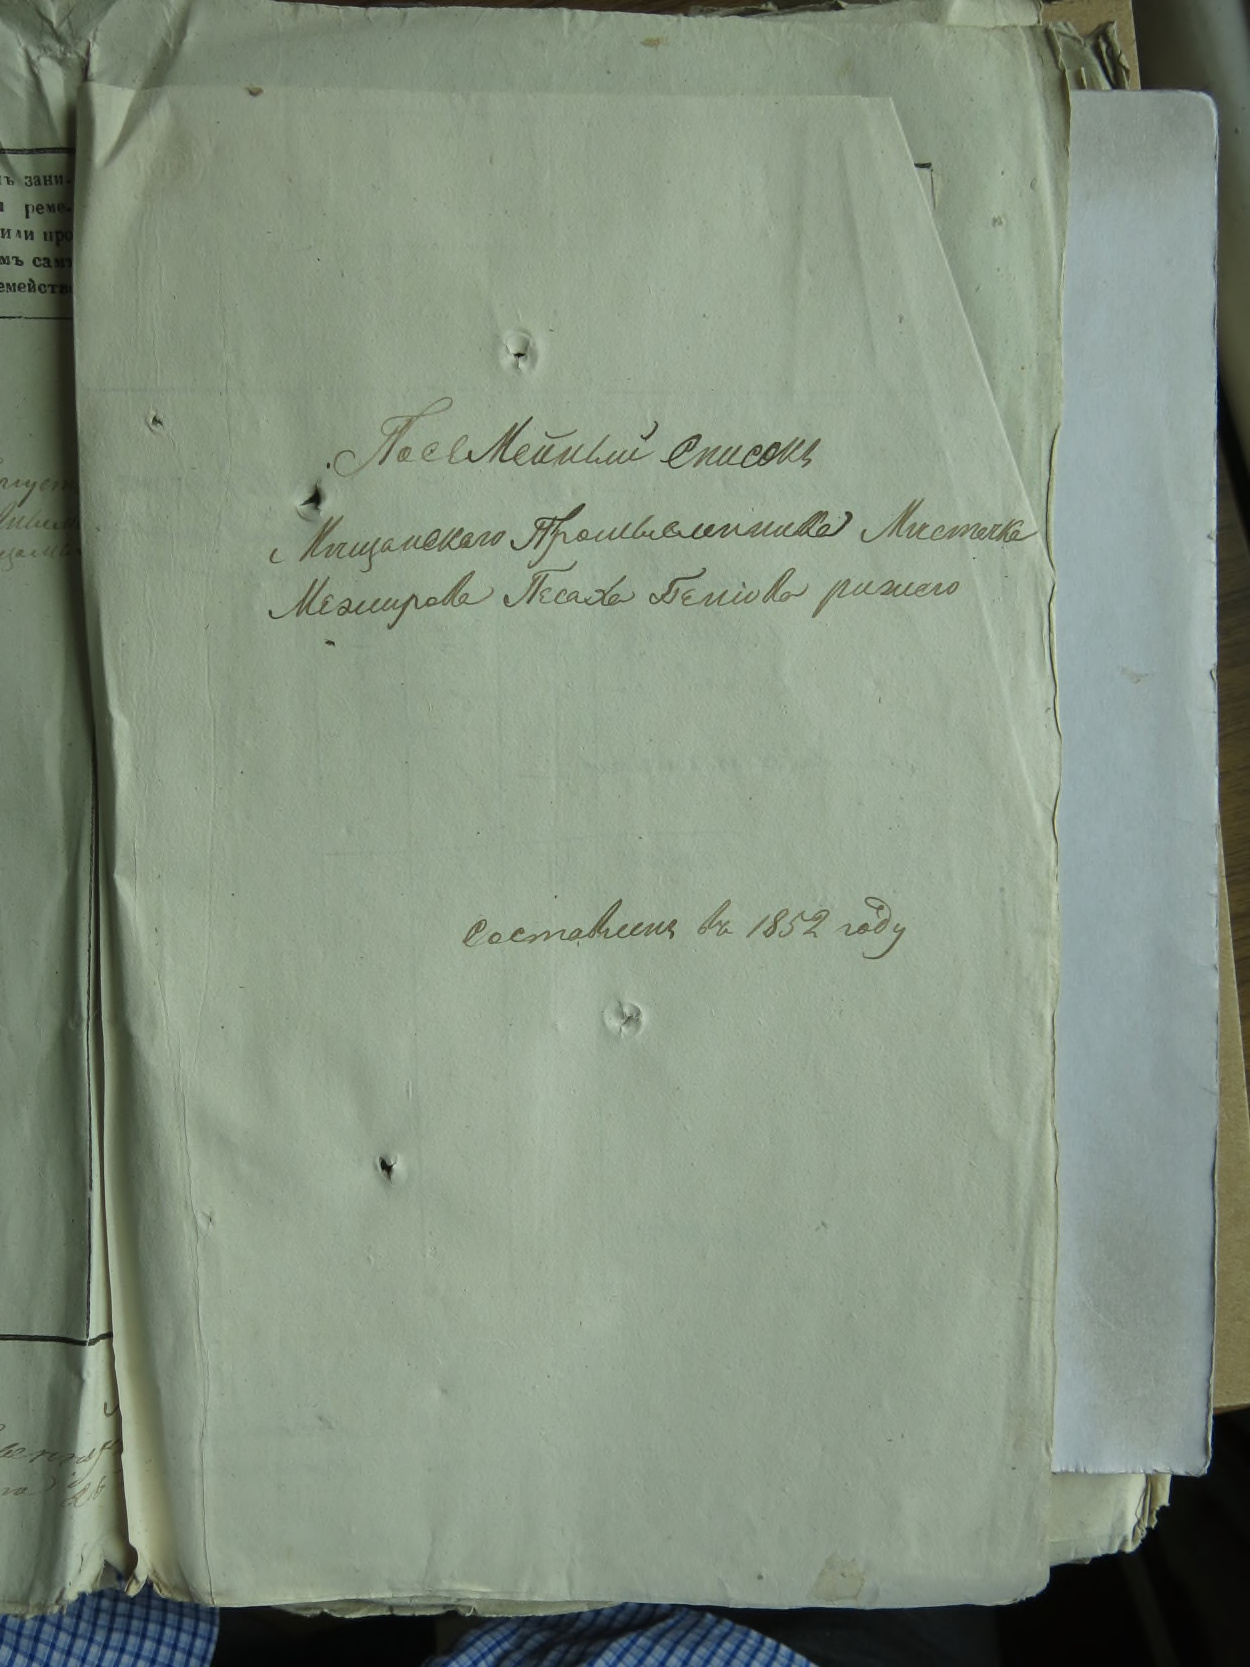 ъ зани-
реме-
или про
мъ сам
емейств
Посемейный Списокъ
Мищанского Промышленника Мистечка
Межирова Песаха Бениова рижего
составленъ въ 1852 году